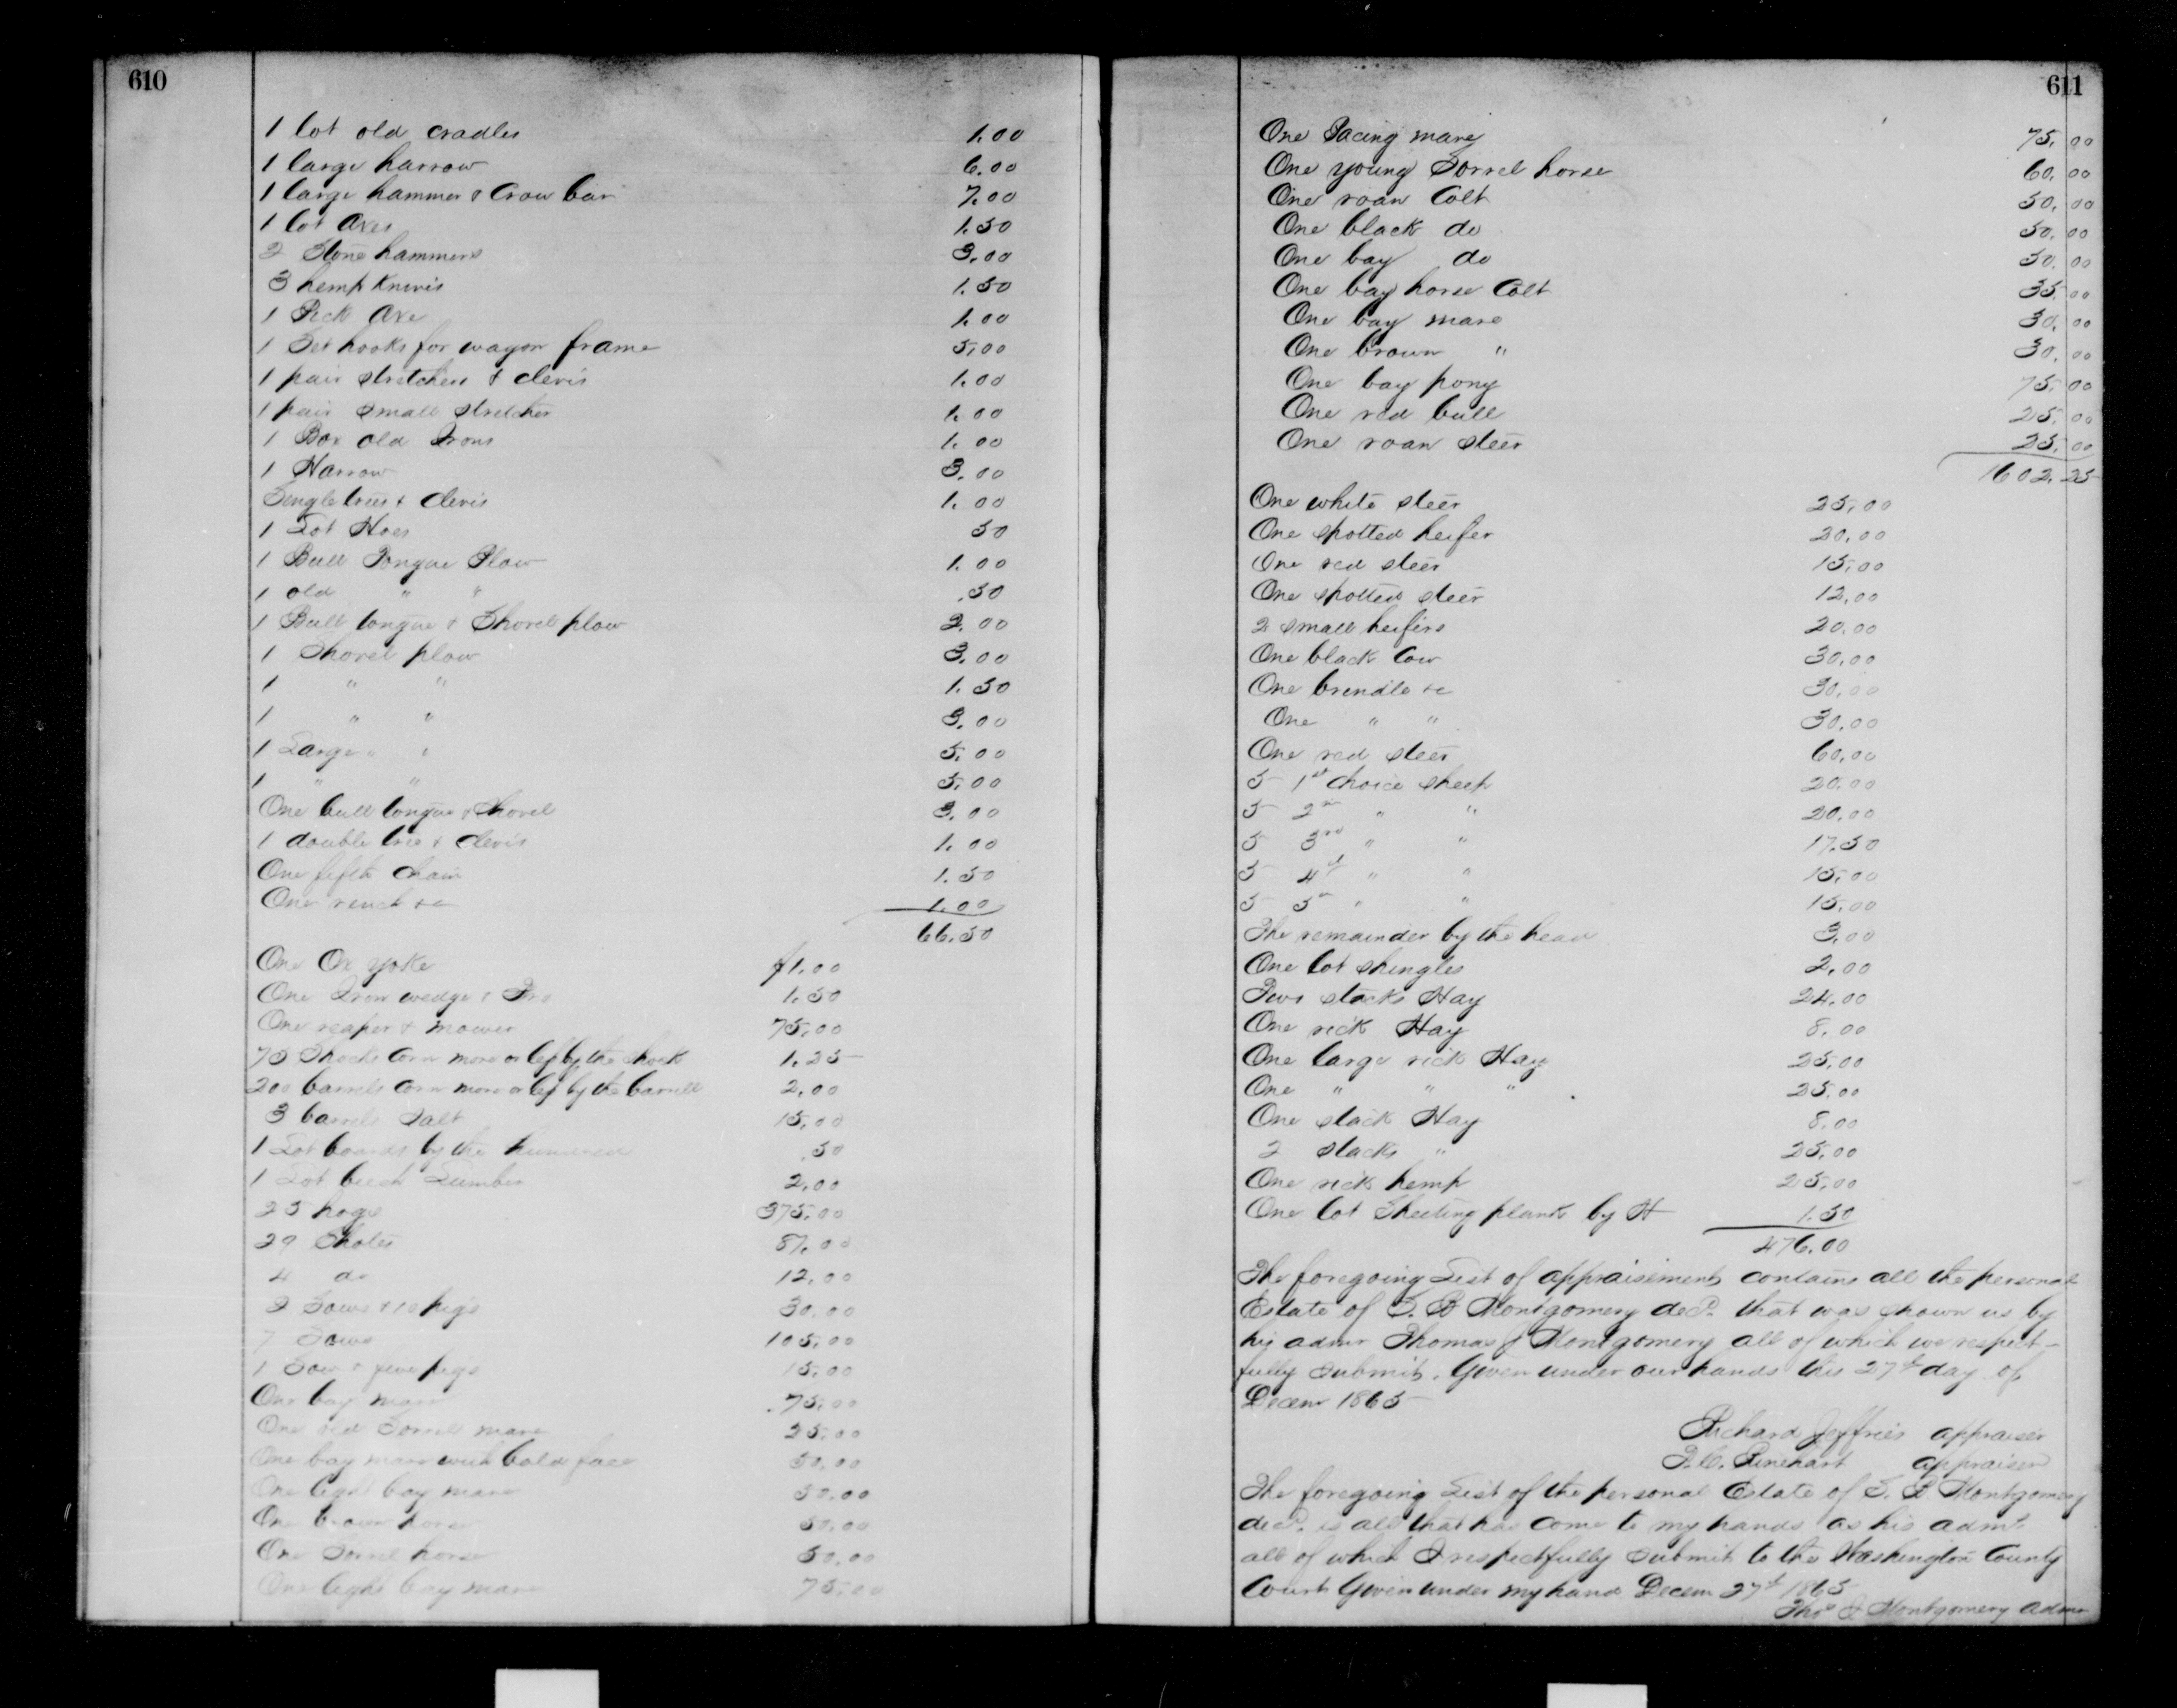 610
1 lot old Cradles 1.00
1 large harrow 6.00
1 large hammer & Crow bar 7.00
1 lot Axes 1.50
2 Stone hammers 3.00
3 hemp Knives 1.50
1 Pick Axe 1.00
1 Set hooks for wagon frame 5.00
1 pair stretchers & clevis 1.00
1 pair small stretcher 1.00
1 Box old Irons 1.00
1 Harrow 3.00
Single trees & Clevis 1.00
1 Lot Hoes 50
1 Bull Tongue Plow 1.00
1 old " " .50
1 Bull tongue & Shovel plow 2.00
1 Shovel plow 3.00
1 " " 1.50
1 " " 3.00
1 Large " " 5.00
1 " " 5.00
One bull tongue & Shovel 3.00
1 double tree & Clevis 1.00
One fifth chain 1.50
One rench &c 1.00
66.50
One Ox yoke $1.00
One Iron wedge & Fro 1.50
One reaper & mower 75.00
75 Shocks Corn more or less by the shock 1.25
200 barrels corn more or less by the barrell 2.00
3 barrels Salt 15.00
1 Lot boards by the hundred .50
1 Lot beech Lumber 2.00
25 hogs 375.00
29 Shotes 87.00
4 do 12.00
2 Sows & 10 pigs 30.00
7 Sows 105.00
1 Sow & five pigs 15.00
One bay mare 75.00
One old Sorrel mare 25.00
One bay mare with bald face 50.00
One light bay mare 50.00
One brown horse 50.00
One Sorrel horse 50.00
One light bay mare 75.00
611
One Pacing mare 75.00
One young Sorrel horse 60.00
One roan Colt 50.00
One black do 50.00
One bay do 50.00
One bay horse Colt 35.00
One bay mare 30.00
One brown " 30.00
One bay pony 75.00
One red bull 25.00
One roan steer 25.00
1602.25
One white steer 25.00
One spotted heifer 20.00
One red steer 15.00
One spotted steer 12.00
2 small heifers 20.00
One black Cow 30.00
One brindle &c 30.00
One " " 30.00
One red steer 60.00
5 1st choice sheep 20.00
5 2nd " " 20.00
5 3rd " " 17.50
5 4th " " 15.00
5 5th " " 15.00
The remainder by the head 3.00
One lot shingles 2.00
Two stacks Hay 24.00
One rick Hay 8.00
One large rick Hay 25.00
One " " " 25.00
One stack Hay 8.00
2 stacks " 25.00
One rick hemp 25.00
One lot Sheeting plank by H 1.50
476.00
The foregoing List of appraisement contains all the personal
Estate of S. B Montgomery decd. that was shown us by
his admr Thomas J Montgomery all of which we respect-
fully submit. Given under our hands this 27th day of
Decem 1865
Richard Jeffries appraiser
P.C. Rinehart appraiser
The foregoing List of the personal Estate of S. B Montgomery
decd. is all that has come to my hands as his admr.
all of which I respectfully submit to the Washington County
Court Given under my hand Decem 27th 1865
Thos J Montgomery admr